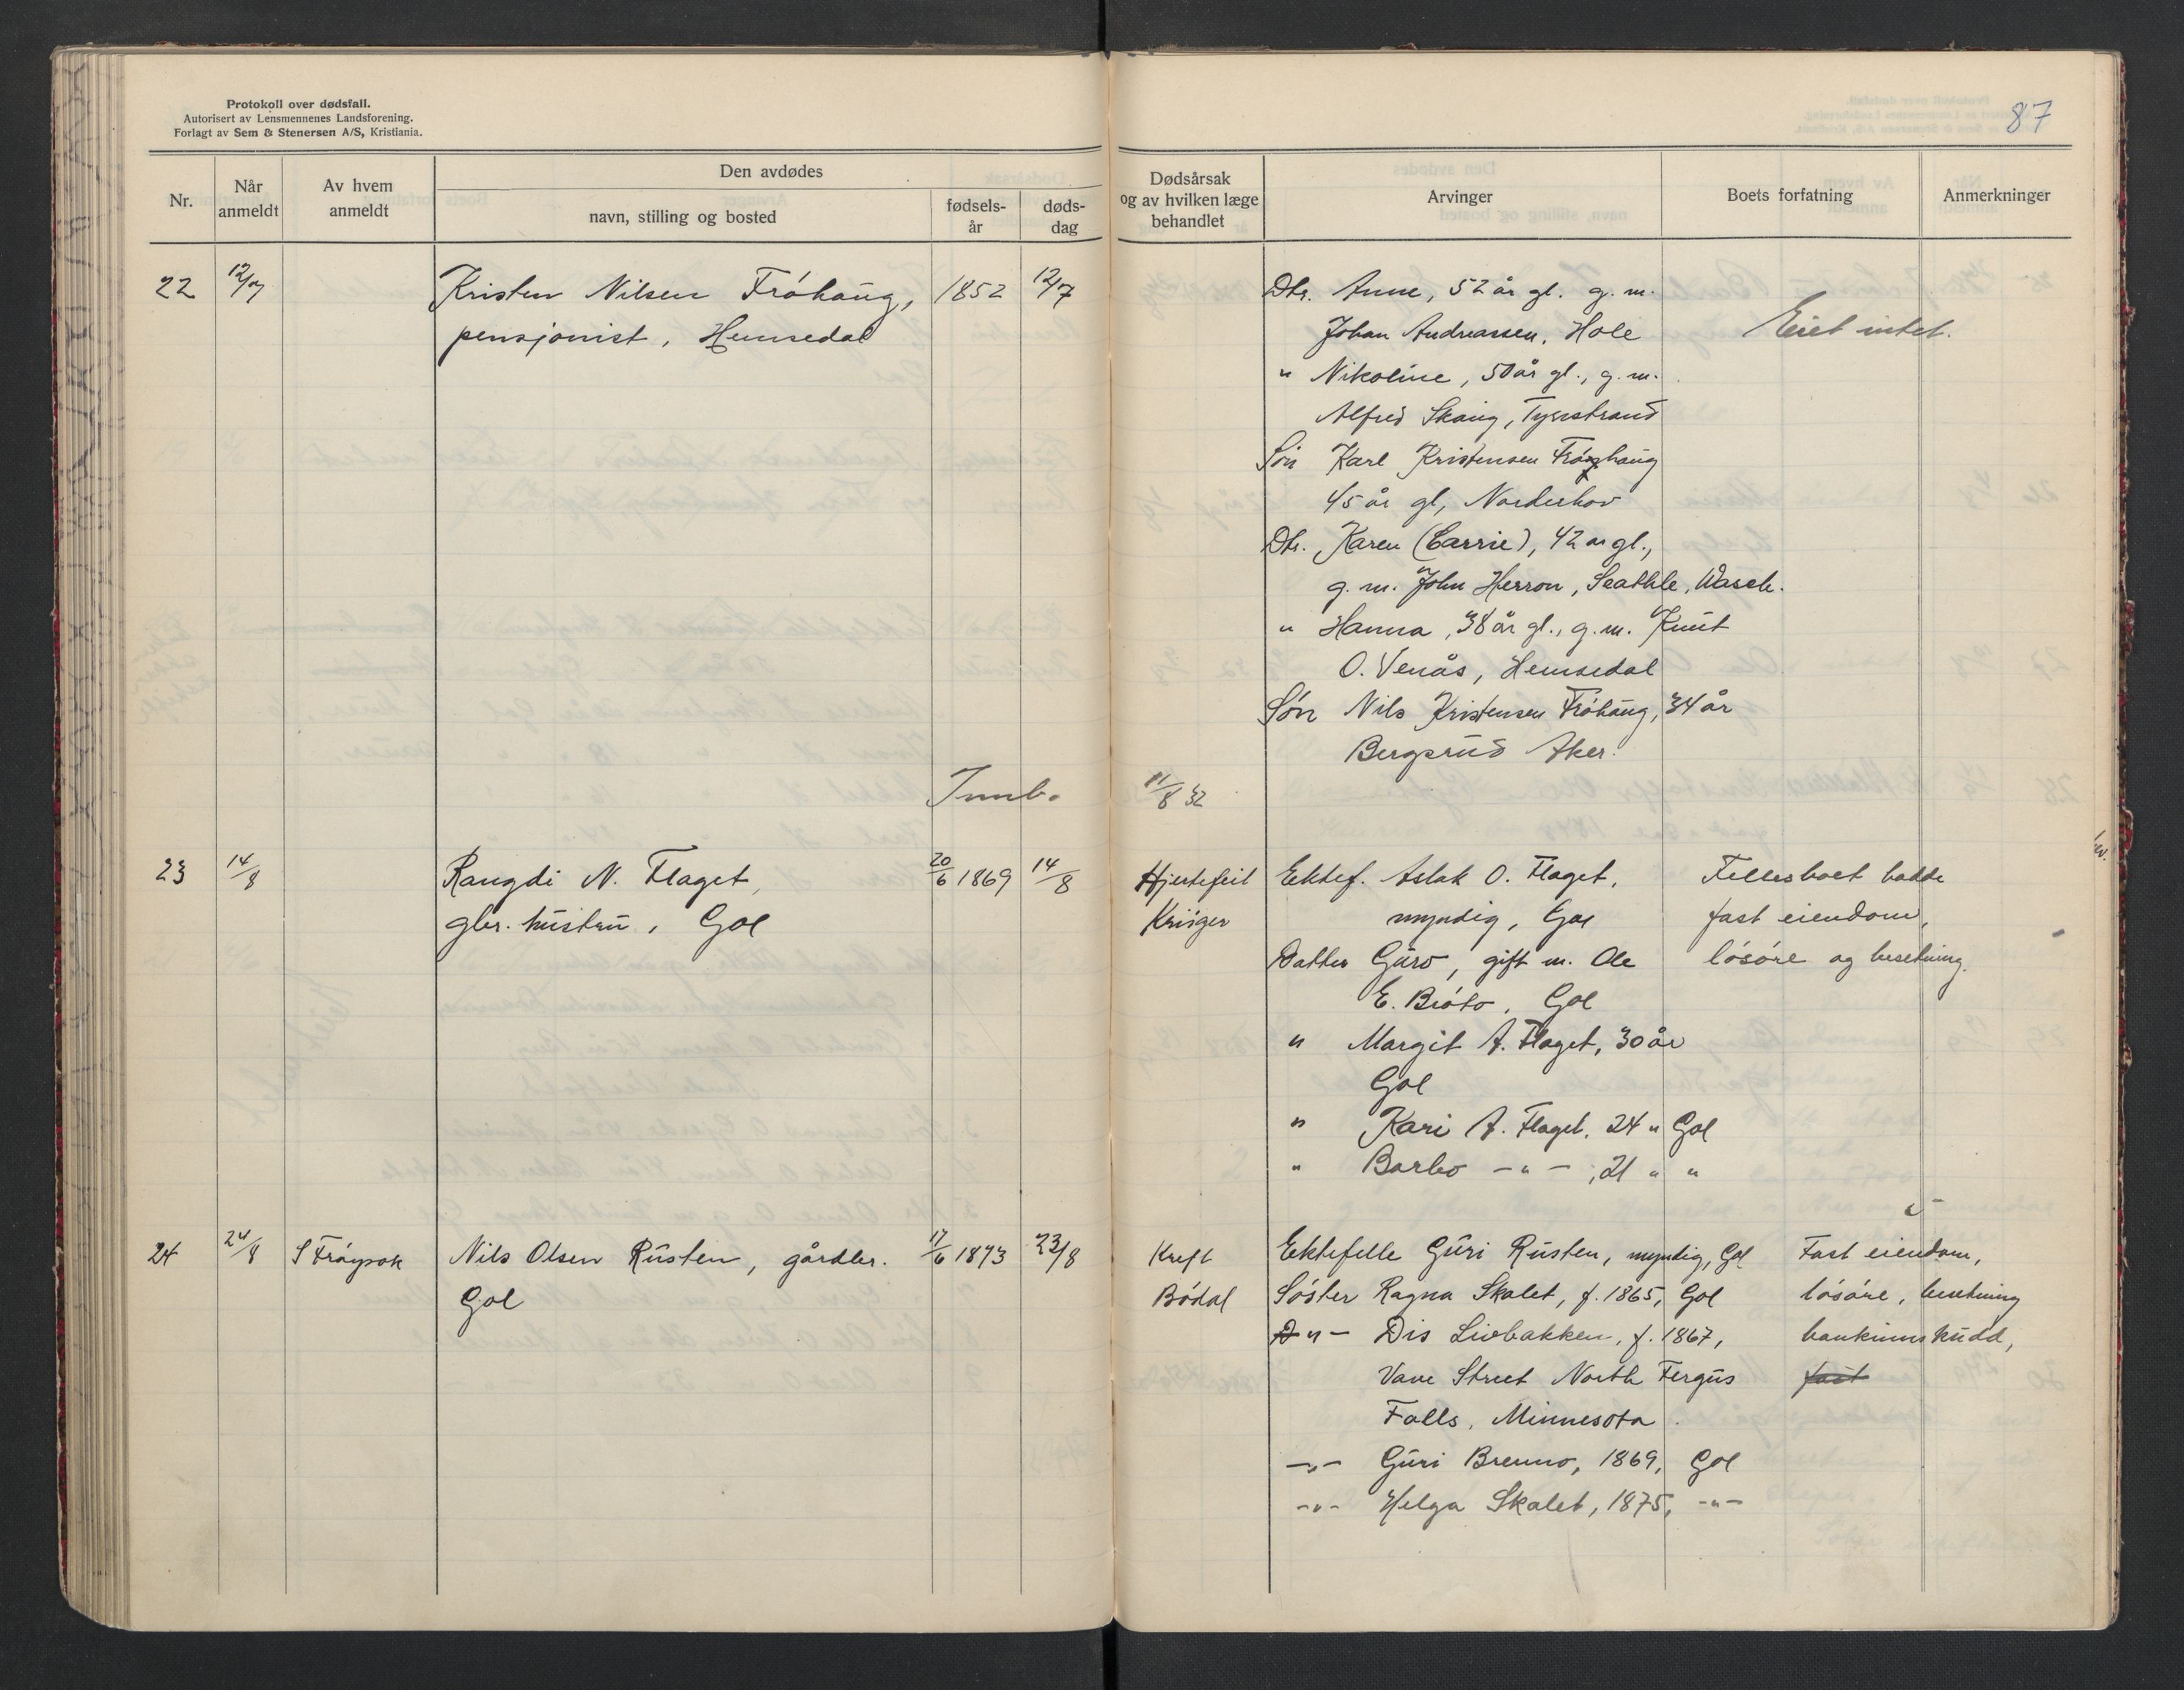 Protokoll over dødsfall.
Autorisert av Lensmennenes Landsforening.
Forlagt av Sem & Stenersen A/S, Kristiania.
87
Nr.
Når anmeldt
Av hvem anmeldt
Den avdødes
navn, stilling og bosted
fødsels-år
døds-dag
Dødsårsak og av hvilken læge behandlet
Arvinger
Boets forfatning
Anmerkninger
22 12/7 Kristen Nilsen Fróhaug, 1852 12/7
pensjonist, Hemsedal
Dtr. Anne, 52 år gl. g. m.
Johan Andreassen, Hole
Eiet intet.
" Nikoline, 50 år gl., g. m.
Alfred Skaug, Tyristrand
Søn Karl Kristensen Fróhaug
45 år gl, Norderhov
Dtr. Karen (Carrie), 42 år gl.,
g. m. John Herron, Seattle, Wasch.
" Hanna, 38 år gl., g. m. Knut
O. Venås, Hemsedal
Søn Nils Kristensen Fróhaug, 34 år
Bergsrud Aker.
Innb. 11/8 32
23 14/8 Rangdi N. Flaget, 20/6 1869 14/8
gbr. hustru, Gol
Hjertefeil
Krüger
Ektef. Aslak O. Flaget,
myndig, Gol
Datter Guro, gift m. Ole
E. Bróto, Gol
" Margit A. Flaget, 30 år
Gol
" Kari A. Flaget, 24 " Gol
" Barbo -"-, 21 " "
Fellesboet hadde
fast eiendom,
lósóre og besetning.
24 24/8 S Fróysok Nils Olsen Rusten, gårdbr. 17/6 1873 23/8
Gol
Kreft
Bódal
Ektefelle Guri Rusten, myndig, Gol
Sóster Ragna Skalet, f. 1865, Gol
-"- Dis Livbakken, f. 1867,
Vane Street North Fergus
Falls, Minnesota.
-"- Guri Brenno, 1869, Gol
-"- Helga Skalet, 1875, -"-
Fast eiendom,
lósóre, besetning
bankinnskudd,
fast